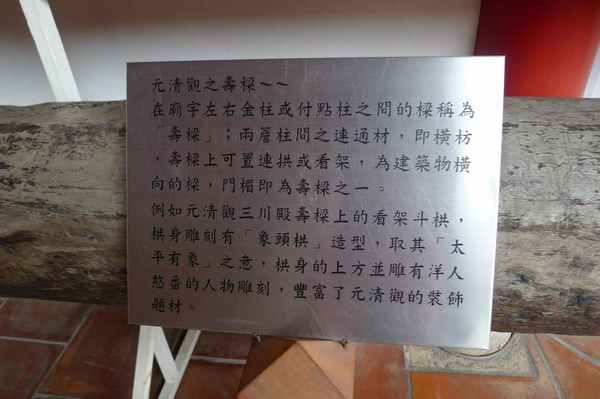 元清觀之壽樑~~
在廟宇左右金柱或付點柱之間的樑稱為
「壽樑」；兩層柱間之連通材，即橫枋
，壽樑上可置連拱或看架，為建築物橫
向的樑，門楣即為壽樑之一。
例如元清觀三川殿壽樑上的看架斗栱，
栱身雕刻有「象頭栱」造型，取其「太
平有象」之意，栱身的上方並雕有洋人
憨番的人物雕刻，豐富了元清觀的裝飾
題材。